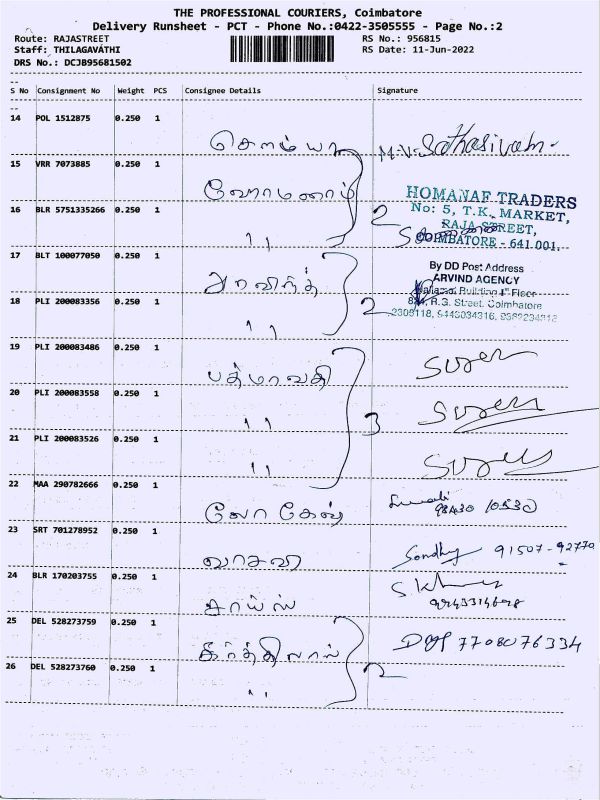 THE PROFESSIONAL COURIERS, Coimbatore
Delivery Runsheet - PCT - Phone No.:0422-3505555 - Page No.:2
Route: RAJASTREET RS No.: 956815
Staff: THILAGAVATHI RS Date: 11-Jun-2022
DRS No.: DCJB95681502
S No Consignment No Weight PCS Consignee Details Signature
14 POL 1512875 0.250 1
சௌம்யா M.V. Sathasivam
15 VRR 7073885 0.250 1
ஹோமனாப் HOMANAF TRADERS
No: 5, T.K. MARKET,
16 BLR 5751335266 0.250 1 2 RAJA STREET,
,, COIMBATORE - 641 001.
17 BLT 100077050 0.250 1
By DD Post Address
அரவிந்த் ARVIND AGENCY
18 PLI 200083356 0.250 1 2 R.G. Street, Coimbatore
,,
19 PLI 200083486 0.250 1
பத்மாவதி Suren
20 PLI 200083558 0.250 1
,, 3 Suren
21 PLI 200083526 0.250 1
,, Suren
22 MAA 290782666 0.250 1
லோகேஷ் 10530
23 SRT 701278952 0.250 1
வாசவி Sandhy 91507-92770
24 BLR 170203755 0.250 1
சாய்ஸ்
25 DEL 528273759 0.250 1
கீர்த்திலால் 7708076334
26 DEL 528273760 0.250 1 2
,,